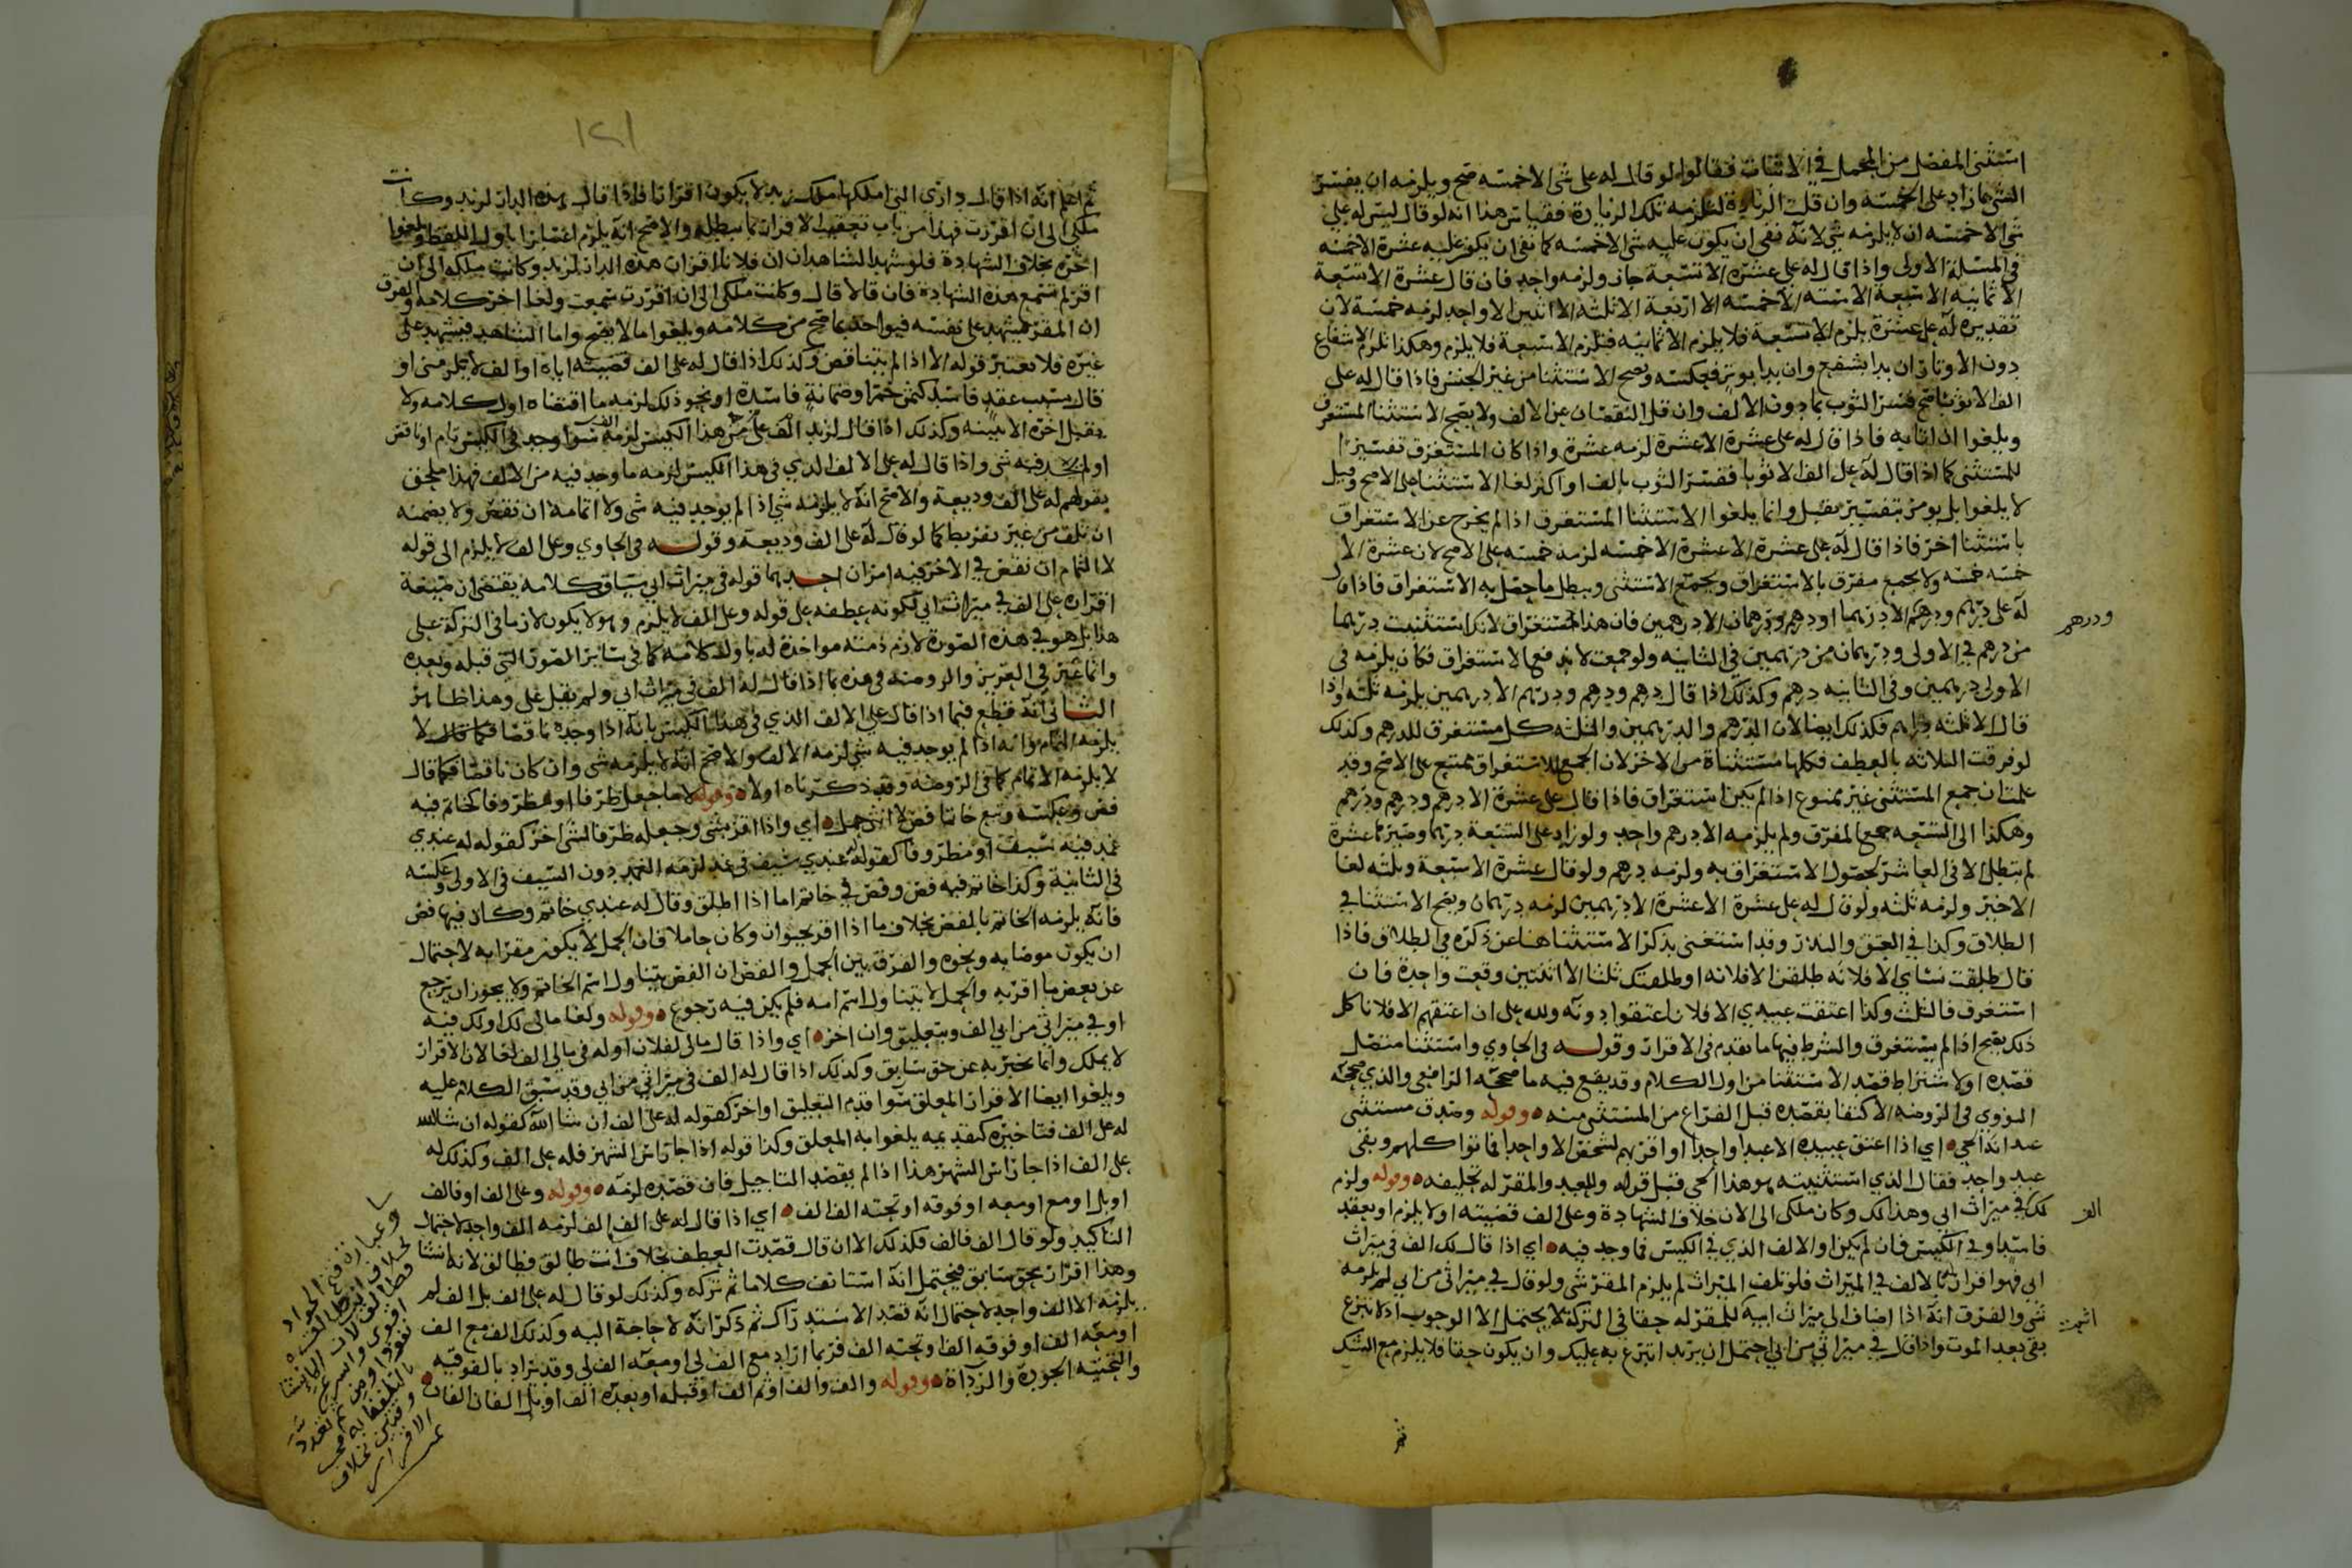 استثنى المفصل من المجمل في الاثبات فقالوا لو قال له على شي الا خمسه صح ويلزمه ان يفسر
الشي بما زاد على الخمسه وان قلت الزيادة لتلزمه تلك الزيادة فقياس هذا انه لو قال ليس له علي
شي الا خمسه ان لا يلزمه شي لانه نفى ان يكون عليه شي الا خمسه كما نفى ان يكون عليه عشرة الا خمسه
في المسئلة الاولى واذا قال له علي عشرة الا تسعة جاز ولزمه واحد فان قال عشرة الا تسعة
الا ثمانيه الا سبعه الا سته الا خمسه الا اربعة الا ثلثه الا اثنين الا واحد لزمه خمسة لان
تقديره له علي عشرة يلزم الا تسعة فلا يلزم الا ثمانيه فتلزم الا سبعة فلا يلزم وهكذا تلزم الاشفاع
دون الاوتار ان بدا بشفع وان بدا بوتر فعكسه وتصح الاستثنا من غير الجنس فاذا قال له علي
الف الا ثوبا صح فسر الثوب بما دون الالف وان قل النقصان عن الالف ولا يصح الاستثنا المستغرق
ويلغوا ان اتا به فاذا قال له علي عشرة الا عشرة لزمه عشرة واذا كان المستغرق تفسيرا
للمستثنى كما اذا قال له علي الف الا ثوبا ففسر الثوب بالف او اكثر لغا الاستثنا على الاصح وقيل
لا يلغوا بل يومر بتفسير يقبل وانما يلغوا الاستثنا المستغرق اذا لم يخرج عن الاستغراق
باستثنا اخر فاذا قال له علي عشرة الا عشرة الا خمسه لزمه خمسه على الاصح لان عشرة الا
خمسه خمسه ولا يجمع مفرق بالاستغراق ويجمع الاستثنى ويبطل ما حصل به الاستغراق فاذا قال
له علي درهم ودرهم الا درهما او درهم ودرهمان الا درهمين فان هذا المستغراق لانك استثنيت درهما
من درهم في الاولى ودرهمان من درهمين في الثانيه ولو جمعت لاندفع الاستغراق فكان يلزمه في
الاولى درهمين وفي الثانيه درهم وكذلك اذا قال درهم ودرهم ودرهم الا درهمين يلزمه ثلثه واذا
قال الا ثلثه دراهم فكذلك ايضا لان الدرهم والدرهمين والثلثه كل مستغرق للدرهم وكذلك
لو فرقت الثلاثه بالعطف فكلها مستثناة من الاخر لان الجمع للاستغراق ممتنع على الاصح وقد
علمت ان جميع المستثنى غير ممنوع اذا لم يكن استغراق فاذا قال علي عشرة الا درهم ودرهم ودرهم
وهكذا الى التسعه جمع المفرق ولم يلزمه الا درهم واحد ولو زاد على التسعة درهما وصيرها عشرة
لم تبطل الا في العاشر لحصول الاستغراق به ولزمه درهم ولو قال عشرة الا سبعة وثلثه لغا
الاخير ولزمه ثلثه ولو قال له علي عشرة الا عشرة الا درهمين لزمه درهمان ويصح الاستثنا في
الطلاق وكذا في العتق والنذر وقد استغنى بذكر الاستثنا هنا عن ذكره في الطلاق فاذا
قال طلقت نساي الا فلانه طلقن الا فلانه او طلقتك ثلثا الا اثنتين وقعت واحدة فان
استغرق فالثلث وكذا اعتقت عبيدي الا فلان اعتقوا دونه ولله علي ان اعتقهم الا فلانا كل
ذلك يصح اذا لم يستغرق والشرط فيها ما تقدم في الاقرار وقوله في الحاوي واستثنا متصل
قصده اولا شتراط قصد الاستثنا من اول الكلام وقد يقع فيه ما صححه الرافعي والذي صححه
النووي في الروضه الاكتفا بقصده قبل الفراغ من المستثنى منه ه وقوله وصدق مستثنى
عبد انه الحي ه اي اذا اعتق عبيده الا عبدا واحدا او اقر بهم لشخص الا واحدا فماتوا كلهم وبقى
عبد واحد فقال الذي استثنيته هو هذا الحي قبل قوله وللعبد والمقر له تحليفه ه وقوله ولزم
لك في ميراث ابي وهذا لك وكان ملكي الى الان خلاف الشهادة وعلى الف قضيته اولا يلزم او بعقد
فاسد او في الكيس فان لم يكن او الالف الذي في الكيس فما وجد فيه ه اي اذا قال لك الف في ميراث
ابي فهو اقرار بالالف في الميراث فلو تلف الميراث لم يلزم المقر شي ولو قال في ميراثي من ابي لم يلزمه
شي والفرق انه اذا اضاف الى ميراث ابيه للمقر له حقا في التركة لا يحتمل الا الوجوب اذ لا تبرع
بقى بعد الموت واذا قال في ميراثي من ابي احتمل ان يريد اتبرع به عليك وان يكون حقا فلا يلزم مع الشك
ودرهم
الف
١٢١
ثم اعلم انه اذا قال داري التي املكها ملك زيد لا يكون اقرارا فاذا قال هذه الدار لزيد وكانت
ملكي الى ان اقررت فهذا من باب تعقيب الاقرار بما يبطله والاصح انه يلزم اعتبارا باول اللفظ ويلغوا
اخره بخلاف الشهادة فلو شهد الشاهدان ان فلانا اقر ان هذه الدار لزيد وكانت ملكه الى ان
اقر لم تسمع هذه الشهادة فان قالا قال وكانت ملكي الى ان اقررت سمعت ولغا اخر كلامه والفرق
ان المقر يشهد على نفسه فيواخذ بما صح من كلامه ويلغوا ما لا يصح واما الشاهد فيشهد على
غيره فلا يعتبر قوله الا اذا لم يتناقض وكذلك اذا قال له علي الف قضيته اياه او الف لا يلزمني او
قال بسبب عقد فاسد كثمن خمر او ضمانة فاسدة او نحو ذلك لزمه ما اقتضاه اول كلامه ولا
يقبل اخره الا ببينه وكذلك اذا قال لزيد الف علي في هذا الكيس لزمه سوا وجد في الكيس تام او ناقص
او لم يجد فيه شي واذا قال له علي الالف الذي في هذا الكيس لزمه ما وجد فيه من الالف فهذا ملحق
بقولهم له علي الف وديعة والاصح انه لا يلزمه شي اذا لم يوجد فيه شي ولا اتمامه ان نقص ولا يضمنه
ان تلف من غير تفريط كما لو قال له علي الف وديعة وقوله في الحاوي وعلي الف لا يلزم الى قوله
لا التمام ان نقص في الاخر فيه امران احدهما قوله في ميراث ابي سياق كلامه يقتضي ان تبعة
اقراره علي الف في ميراث ابي لكونه عطفه على قوله وعلي الف لا يلزم وهو لا يكون لازما في التركة على
هذا بل هو في هذه الصورة لازم ذمته مواخذة له باول كلامه كما في ساير الصور التي قبله وبعده
وانما عبر في العزيز والروضه في هذه بما اذا قال له الف في ميراث ابي ولم يقل علي وهذا ظاهر
الثاني انه قطع فيما اذا قال علي الالف الذي في هذا الكيس بانه اذا وجده ناقصا فكما قال لا
يلزمه التمام وانه اذا لم يوجد فيه شي لزمه الالف والاصح انه لا يلزمه شي وان كان ناقصا فكما قال
لا يلزمه الاتمام كما في الروضة وقد ذكرناه اولا ه وقوله لا ما جعل ظرفا او مظروفا كخاتم فيه
فص وعكسه وتبع خاتما فص لا انثى حمل ه اي واذا اقر بشي وجعله ظرفا لشي اخر كقوله له عندي
غمد فيه سيف او مظروفا كقوله عندي سيف في غمد لزمه الغمد دون السيف في الاولى وعكسه
في الثانية وكذا خاتم فيه فص وفص في خاتم اما اذا اطلق وقال له عندي خاتم وكان فيها فص
فانه يلزمه الخاتم بالفص بخلاف ما اذا اقر بحيوان وكان حاملا فان الحمل لا يكون مقرا به لاحتمال
ان يكون موصا به ونحوه والفرق بين الحمل والفص ان الفص يتناول اسم الخاتم ولا يجوز ان يرجع
عن بعض ما اقر به والحمل لا يتناول اسم امه فلم يكن فيه رجوع ه وقوله ولغا مالي لك او لك فيه
او في ميراثي من ابي الف وبتعليق وان اخر ه اي واذا قال مالي لفلان او له في مالي الف لغا لان الاقرار
لا يملك وانما يخبر به عن حق سابق وكذلك اذا قال له الف في ميراثي من ابي وقد سبق الكلام عليه
ويلغوا ايضا الاقرار المعلق سوا قدم التعليق او اخر كقوله له علي الف ان شا الله كقوله ان شا الله
له علي الف فتاخيره كتقديمه يلغوا به المعلق وكذا قوله اذا جا راس الشهر فله علي الف وكذلك له
علي الف اذا جا راس الشهر هذا اذا لم يقصد التاجيل فان قصده لزمه ه وقوله وعلي الف او فالف
او بل او مع او معه او فوقه او تحته الف الف ه اي اذا قال له علي الف الف لزمه الف واحد لاحتمال
التاكيد ولو قال الف فالف فكذلك الا ان قال قصدت العطف بخلاف انت طالق فطالق لانه انشا
وهذا اقرار بحق سابق فيحتمل انه استانف كلاما ثم تركه وكذلك لو قال له علي الف بل الف لم
يلزمه الا الف واحد لاحتمال انه قصد الاستدراك ثم ذكر انه لا حاجة اليه وكذلك الف مع الف
او معه الف او فوقه الف او تحته الف فربما اراد مع الف لي او معه الف لي وقد يراد بالفوقيه
والتحتيه الجودة والرداة ه وقوله والف والف او ثم الف او قبله او بعده الف او بل الفان الفان